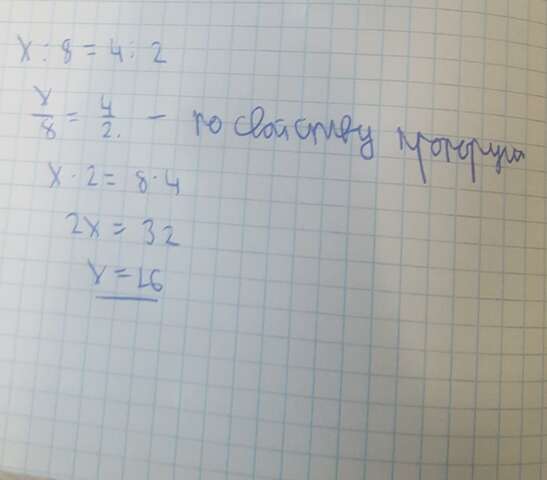 x : 8 = 4 : 2
x/8 = 4/2. - по свойству пропорции
x · 2 = 8 · 4
2x = 32
x = 16